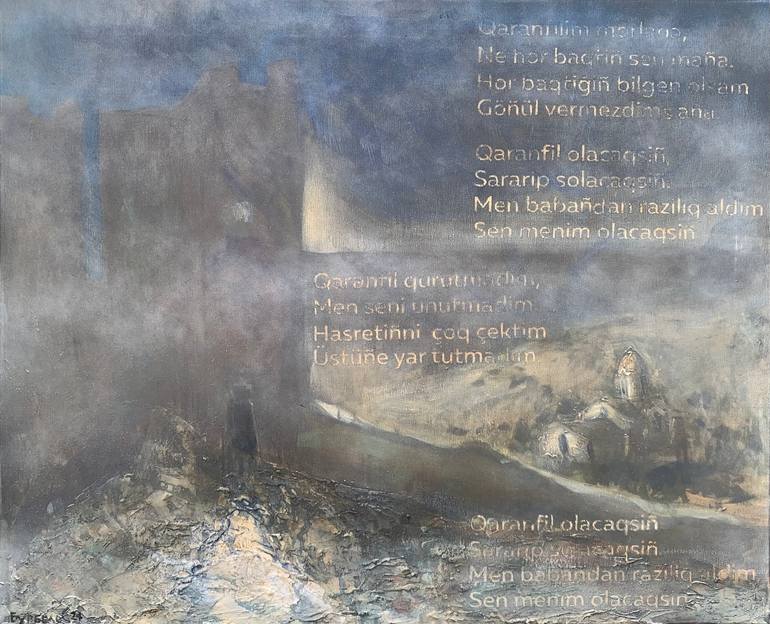 Ne hor baqtiñ sen maña.
Hor baqtiğiñ bilgen olsam
Göñül vermezdim saña
Qaranfil olacaqsiñ,
Sararıp solacaqsiñ.
Men babañdan raziliq aldim
Sen menim olacaqsiñ
Qaranfil qurutmadim,
Men seni unutmadim
Hasretiñni çoq çektim
Üstüñe yar tutmadim
Qaranfil olacaqsiñ
Sararıp solacaqsiñ.
Men babañdan raziliq aldim
Sen menim olacaqsiñ